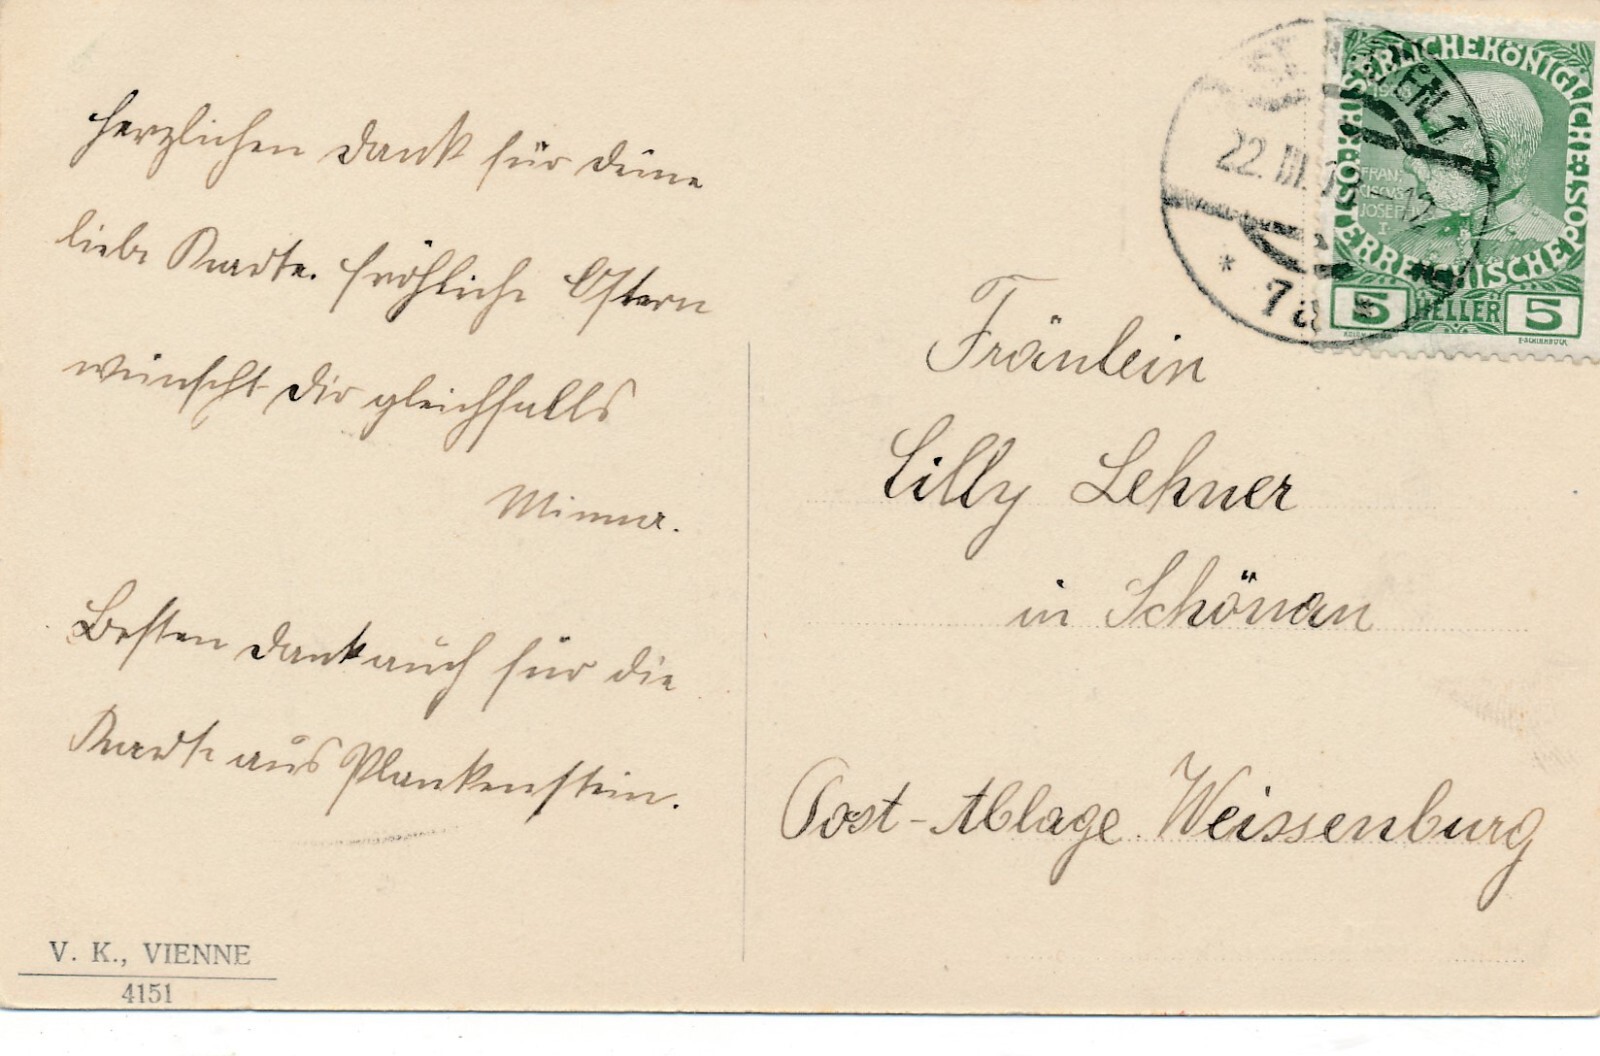 Herzlichen Dank für Deine
liebe Karte. Fröhliche Ostern
wünscht Dir gleichfalls
Minna.
Besten Dank auch für die
Karte aus Plankenstein.
V. K., VIENNE
4151
KAISERLICHEKÖNIGLICHE ÖSTERREICHISCHE POST
1908
FRAN
CISCUS
JOSEF
I
5 HELLER 5
22. III. 13-12
* 7a *
Fräulein
Lilly Lehner
in Schönau
Post-Ablage Weissenburg